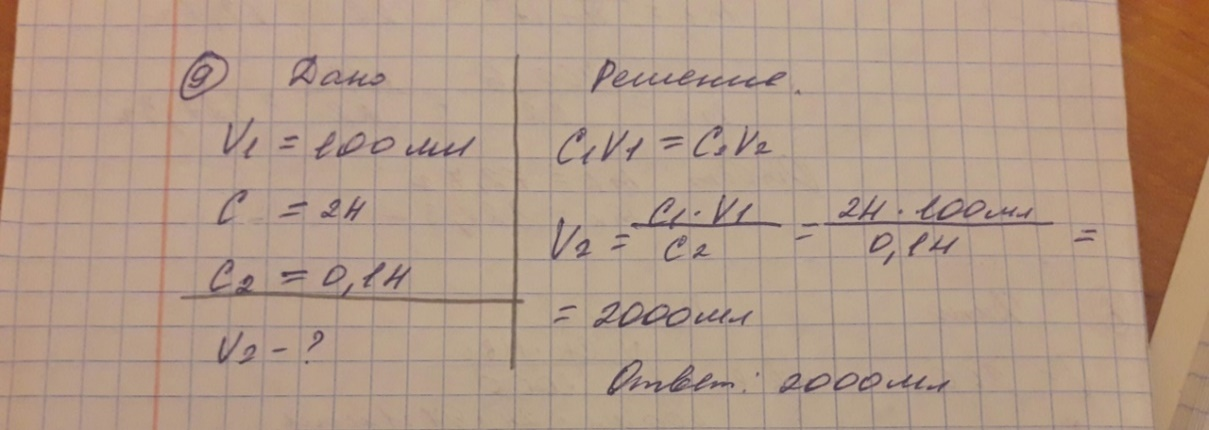 9 Дано
V1 = 100 мл
C = 2н
C2 = 0,1н
V2 - ?
Решение.
C1V1 = C2V2
V2 = C1·V1 / C2 = 2н · 100мл / 0,1н =
= 2000мл
Ответ: 2000мл